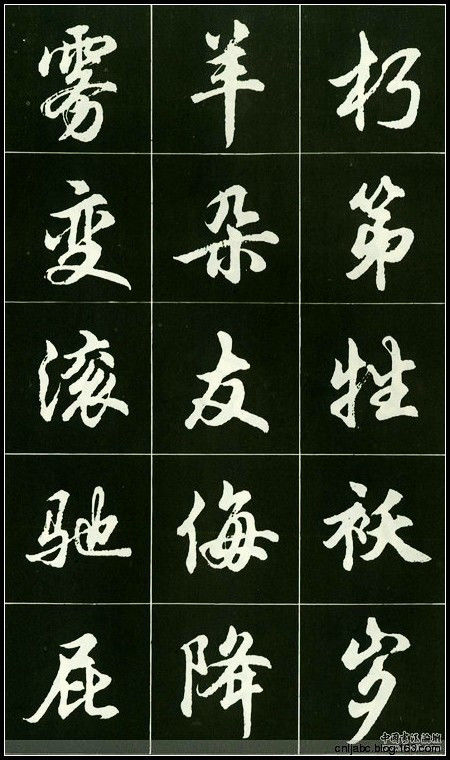 朽第牲袄岁
羊朵友侮降
雾变滚驰屁
中國書法論壇
cnljabc.blog.163.com